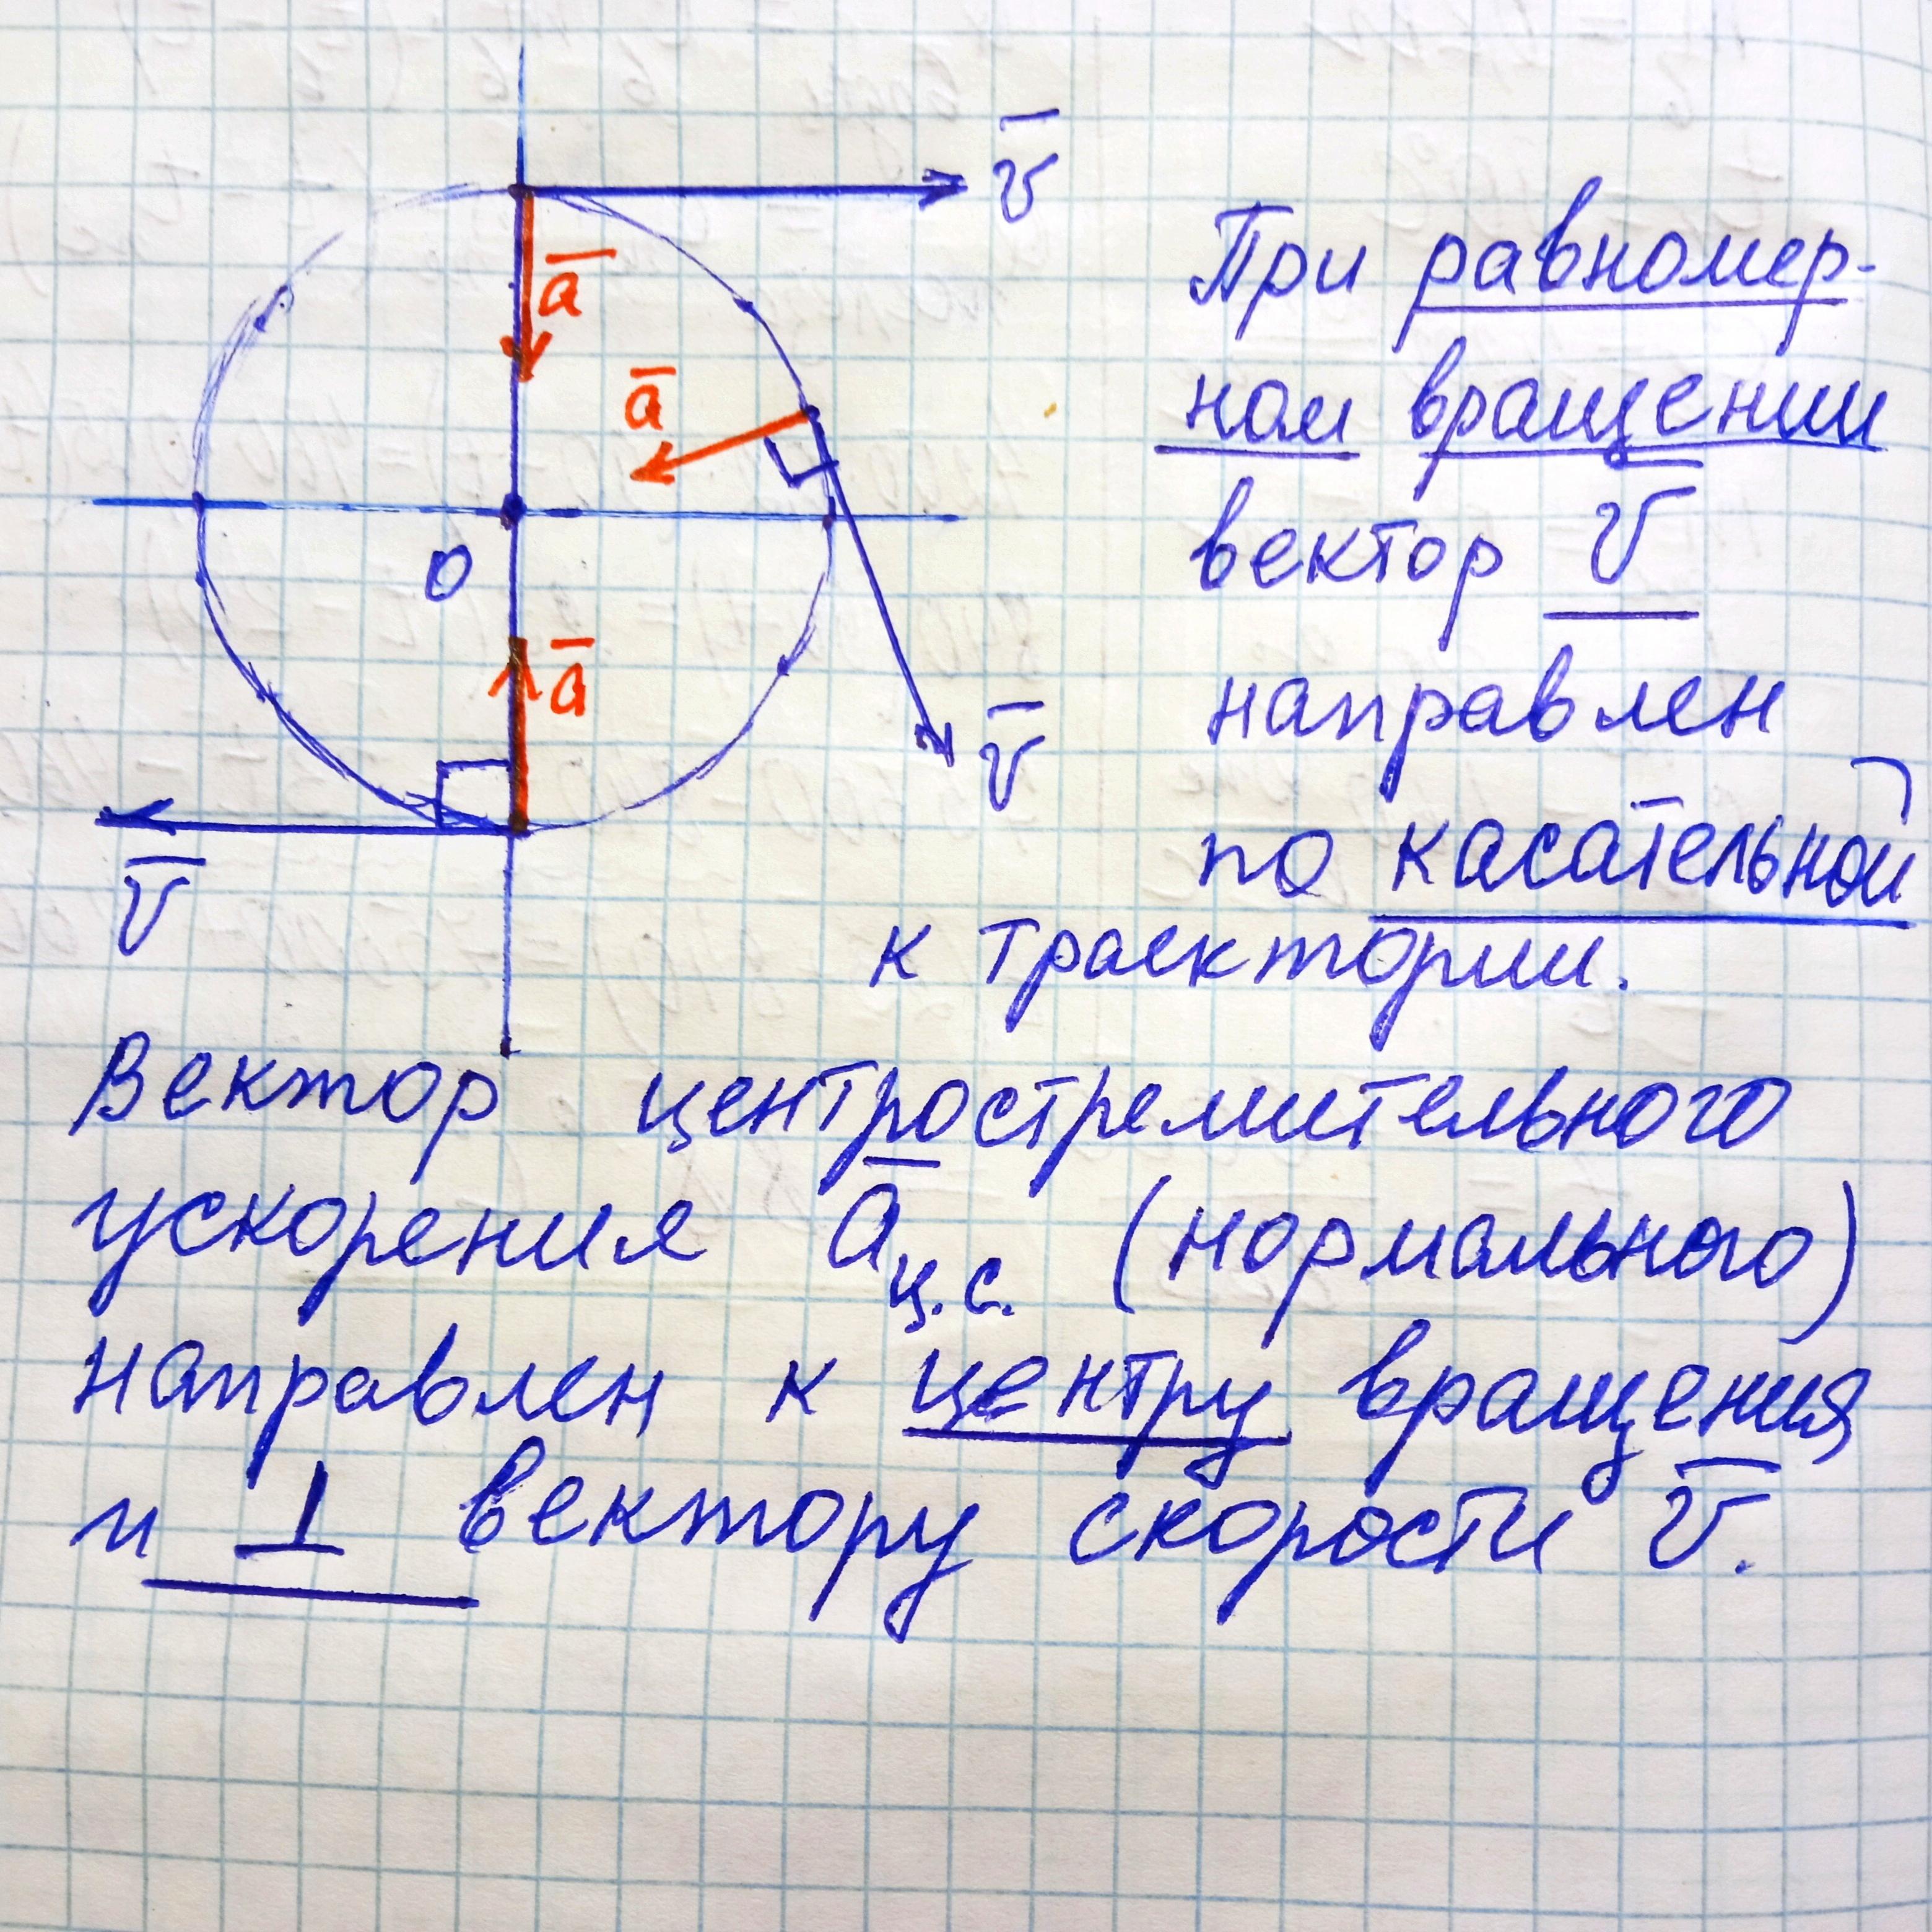 v̅
a̅
a̅
О
a̅
v̅
v̅
При равномер-
ном вращении
вектор v̅
направлен
по касательной
к траектории.
Вектор центростремительного
ускорения a̅ц.с. (нормального)
направлен к центру вращения
и ⊥ вектору скорости v̅.